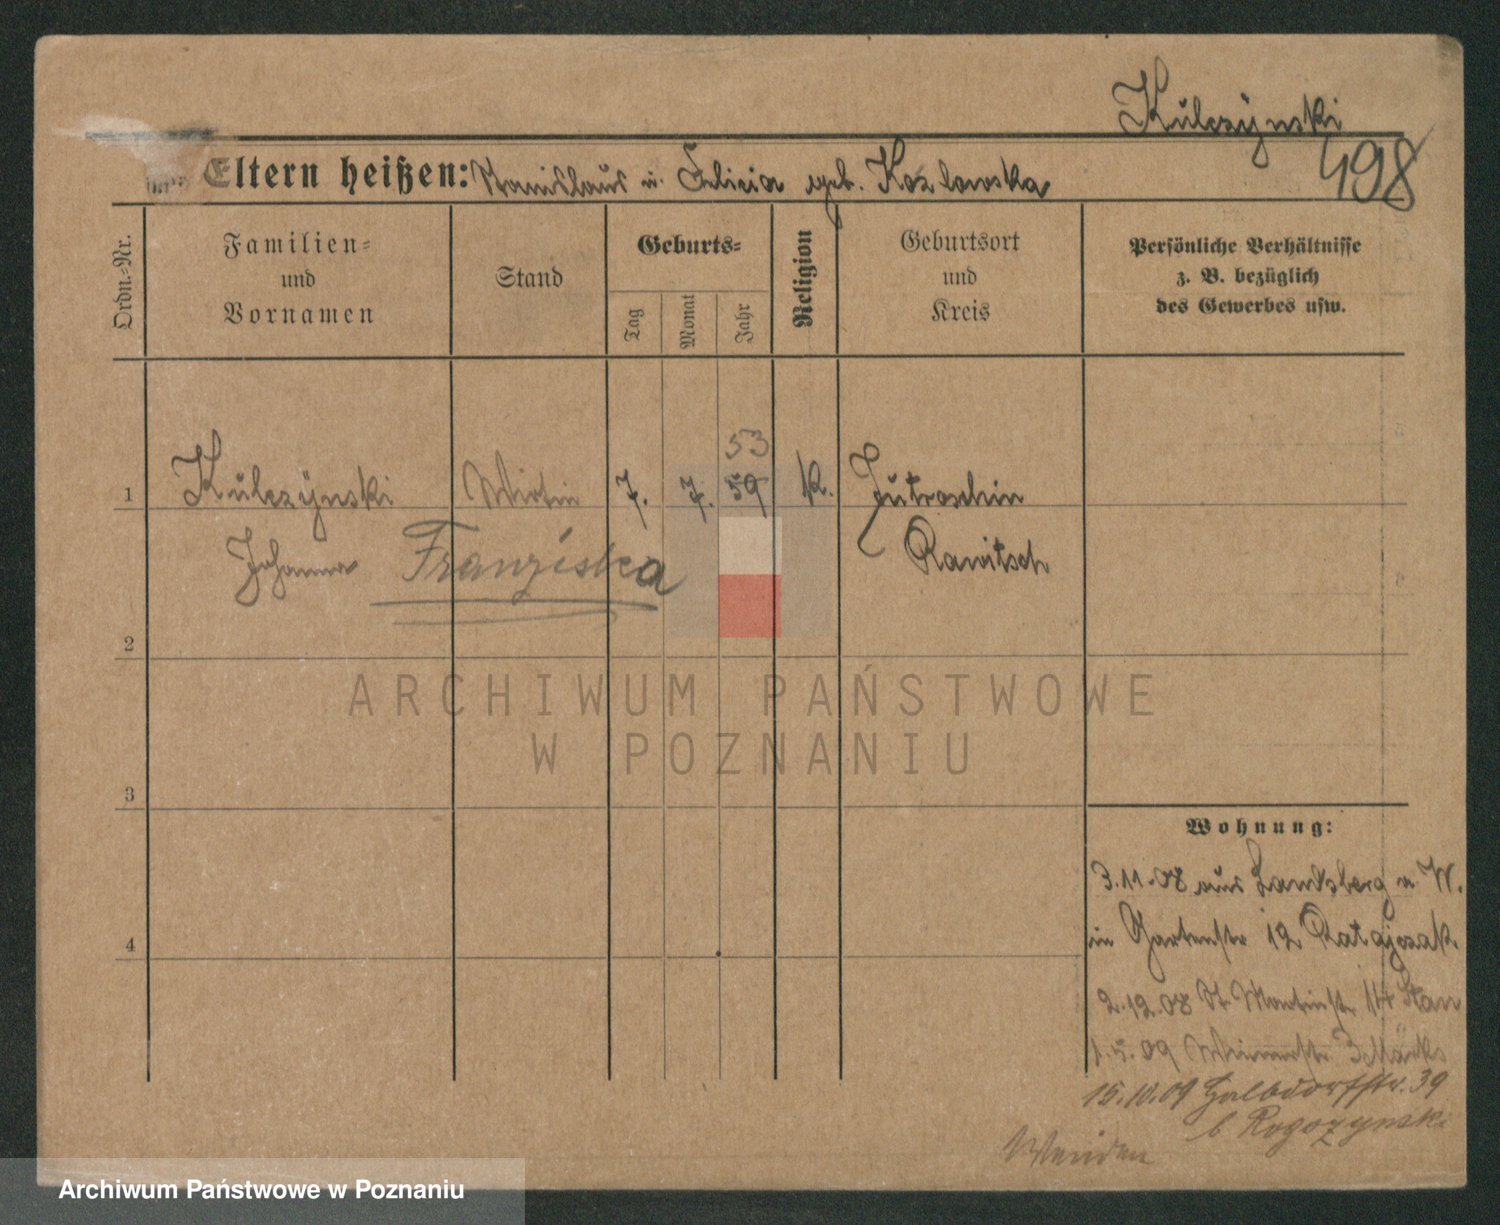 Kulczynski
498
Eltern heißen: Stanislaus u. Felicia geb. Kozlowska
Ordn.-Nr.
Familien-
und
Vornamen
Stand
Geburts-
Tag
Monat
Jahr
Religion
Geburtsort
und
Kreis
Persönliche Verhältnisse
z. B. bezüglich
des Gewerbes usw.
53
1 Kulczynski Wirtin 7. 7. 59 K. Jutroschin
Johanna Franziska Rawitsch
2
ARCHIWUM PAŃSTWOWE
W POZNANIU
3
Wohnung:
3.11.08 aus Landsberg a. W.
in Gartenstr 12 Ratajczak
4
2.12.08 St Martinstr 14 Stan
1.5.09
15.10.09 Halbdorfstr. 39
b Rogozynski
Archiwum Państwowe w Poznaniu